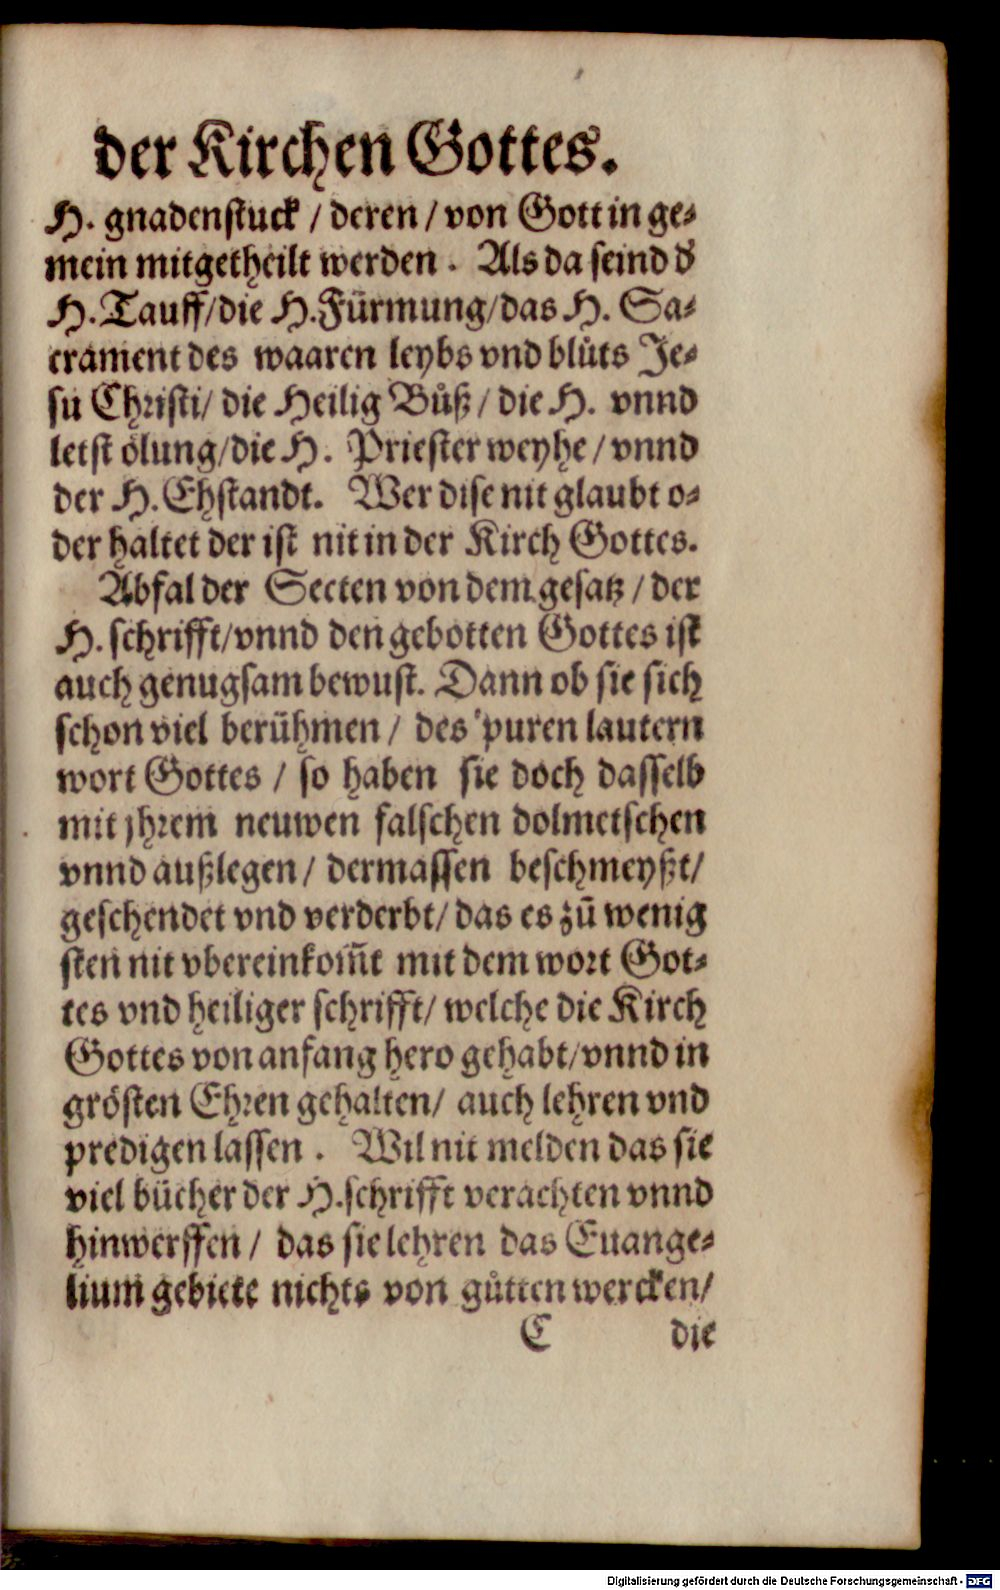 der Kirchen Gottes.
H. gnadenstuck / deren / von Gott in ge⸗
mein mitgetheilt werden. Als da seind d̕
H. Tauff/die H. Fürmung/das H. Sa⸗
crament des waaren leybs vnd blůts Je⸗
su Christi/ die Heilig Bůß / die H. vnnd
letst ölung/die H. Priester weyhe / vnnd
der H. Ehstandt. Wer dise nit glaubt o⸗
der haltet der ist nit in der Kirch Gottes.
Abfal der Secten von dem gesatz / der
H. schrifft/vnnd den gebotten Gottes ist
auch genugsam bewust. Dann ob sie sich
schon viel berühmen / des puren lautern
wort Gottes / so haben sie doch dasselb
mit jhrem neuwen falschen dolmetschen
vnnd außlegen / dermassen beschmeyßt/
geschendet vnd verderbt/ das es zů wenig
sten nit vbereinkom̃t mit dem wort Got⸗
tes vnd heiliger schrifft/ welche die Kirch
Gottes von anfang hero gehabt/vnnd in
grösten Ehren gehalten/ auch lehren vnd
predigen lassen. Wil nit melden das sie
viel bücher der H. schrifft verachten vnnd
hinwerffen / das sie lehren das Euange⸗
lium gebiete nichts von gůtten wercken/
C die
Digitalisierung gefördert durch die Deutsche Forschungsgemeinschaft - DFG